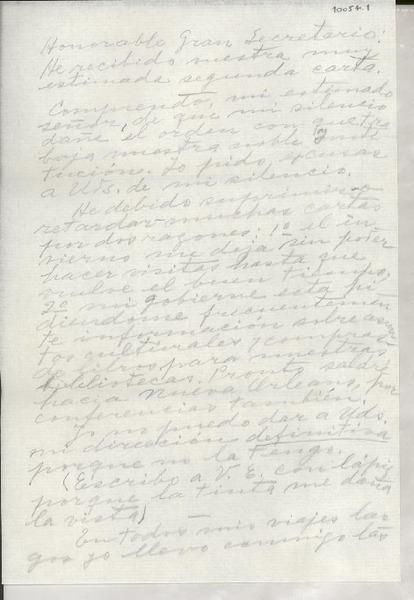 10054.1
Honorable Gran Secretario:
He recibido vuestra muy
estimada segunda carta.
Comprendo, mi estimado
señor, de que mi silencio
dañe el orden con que tra
baja vuestra noble Insti
tución. Yo pido excusas
a Uds. de mi silencio.
He debido suprimir o
retardar muchas cartas
por dos razones: 1º el in
vierno me deja sin poder
hacer visitas hasta que
vuelve el buen tiempo;
2º mi gobierno está pi
diéndome frecuentemen
te información sobre asun
tos culturales y compra
de libros para nuestras
bibliotecas. Pronto saldré
hacia Nueva Orleans, por
conferencias también.
Yo no puedo dar a Uds.
mi dirección definitiva
porque no la tengo.
(Escribo a V. E. con lápiz
porque la tinta me daña
la vista)
En todos mis viajes lar
gos yo llevo conmigo las